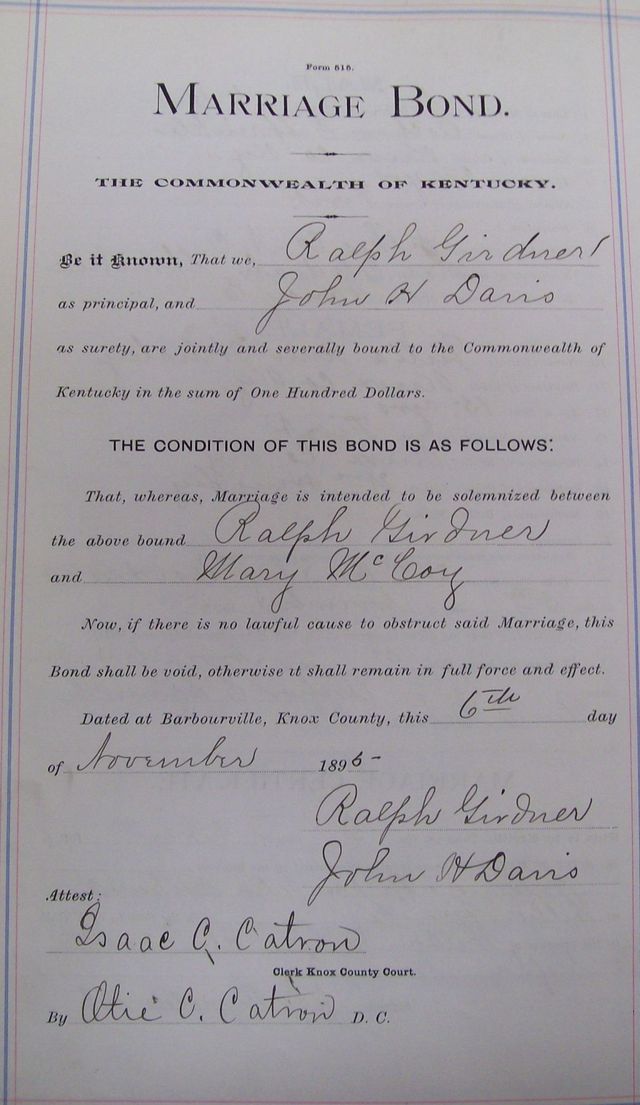 Form 515.
MARRIAGE BOND.
THE COMMONWEALTH OF KENTUCKY.
Be it Known, That we, Ralph Girdner
as principal, and John H Davis
as surety, are jointly and severally bound to the Commonwealth of
Kentucky in the sum of One Hundred Dollars.
THE CONDITION OF THIS BOND IS AS FOLLOWS:
That, whereas, Marriage is intended to be solemnized between
the above bound Ralph Girdner
and Mary McCoy
Now, if there is no lawful cause to obstruct said Marriage, this
Bond shall be void, otherwise it shall remain in full force and effect.
Dated at Barbourville, Knox County, this 6th day
of November 1895
Ralph Girdner
John H Davis
Attest:
Isaac C. Catron
Clerk Knox County Court.
By Otie C. Catron D. C.